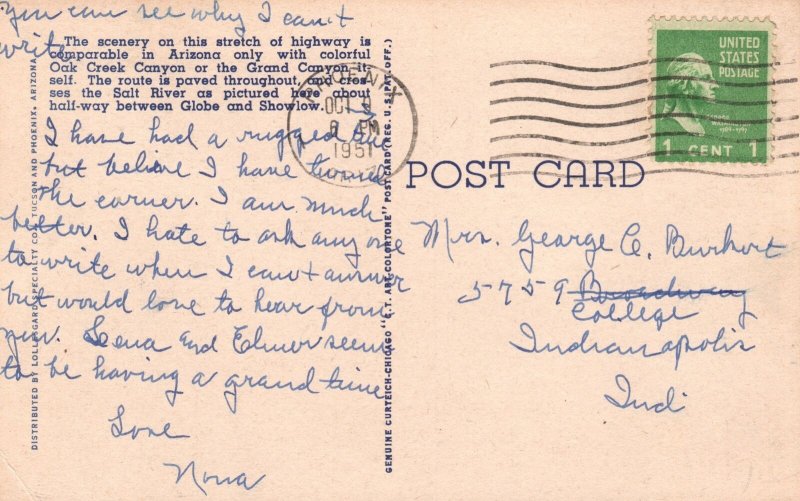 you can see why I can't
write
The scenery on this stretch of highway is
comparable in Arizona only with colorful
Oak Creek Canyon or the Grand Canyon it-
self. The route is paved throughout, and cros-
ses the Salt River as pictured here about
half-way between Globe and Showlow.
I have had a rugged
but believe I have turned
the corner. I am much
better. I hate to ask any one
to write when I can't answer
but would love to hear from
you. Leona and Elmer seem
to be having a grand time
Love
Nona
DISTRIBUTED BY LOLLESGARD SPECIALTY CO., TUCSON AND PHOENIX, ARIZONA
GENUINE CURTEICH-CHICAGO "C.T. ART-COLORTONE" POST CARD (REG. U.S. PAT. OFF.)
PHOENIX
OCT
PM
1951
UNITED
STATES
POSTAGE
1 CENT 1
POST CARD
Mrs. George C. Burkert
5759 Broadway
College
Indianapolis
Ind